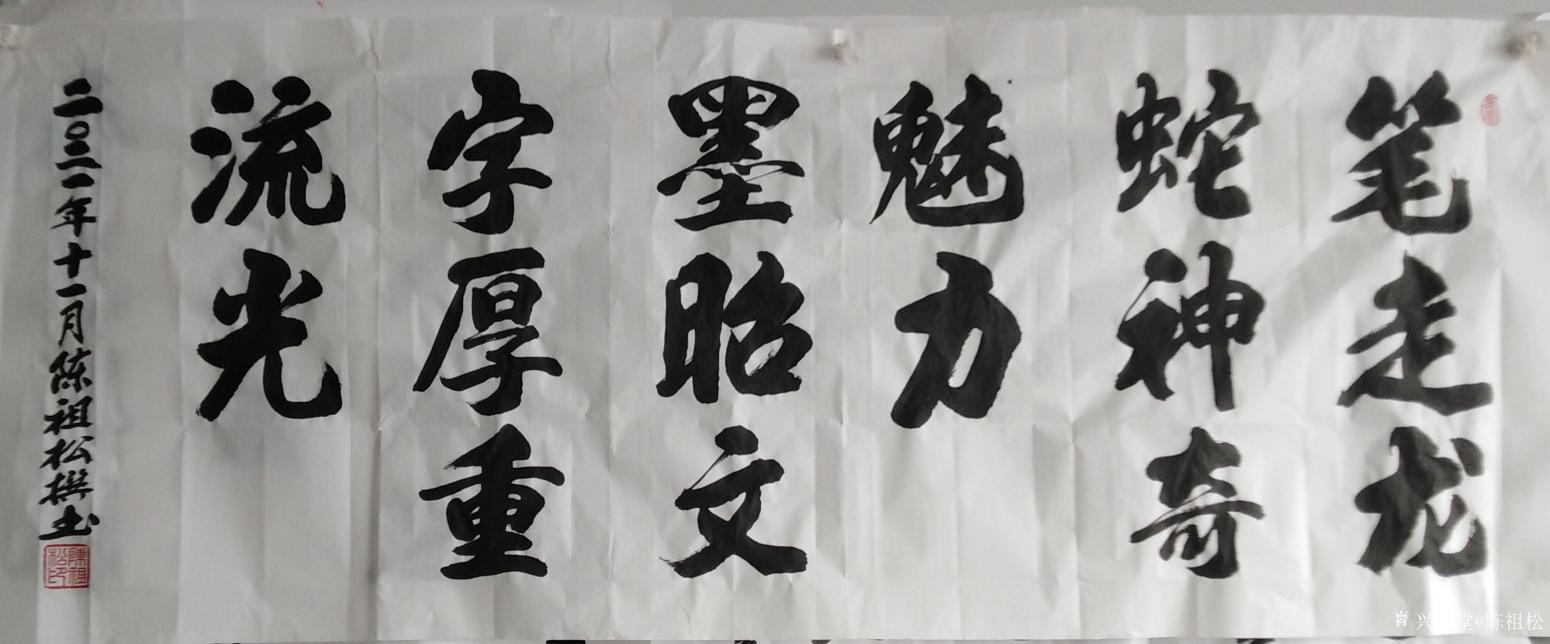 笔走龙
蛇神奇
魅力
墨昭文
字厚重
流光
二〇二一年十一月陈祖松撰书
陳祖松印
@陈祖松